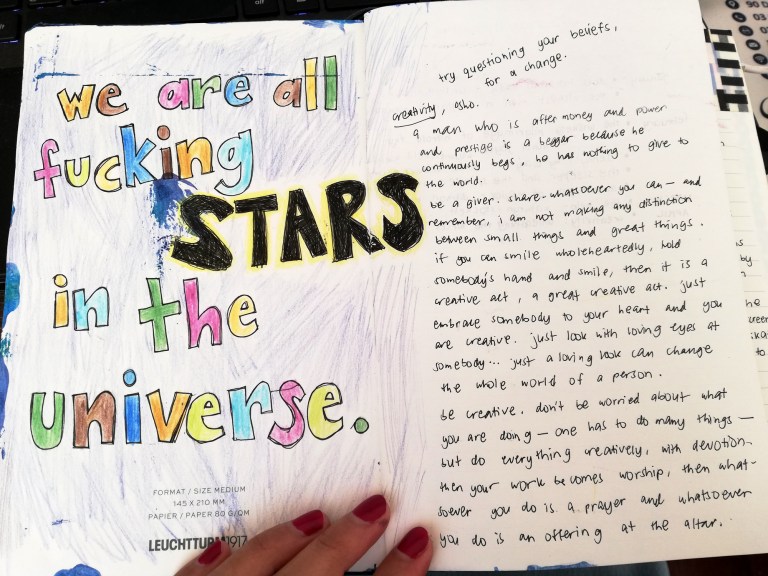 we are all
fucking
STARS
in the
universe.
FORMAT / SIZE MEDIUM
145 X 210 MM
PAPIER / PAPER 80 G/QM
LEUCHTTURM1917
try questioning your beliefs,
for a change.
creativity, osho.
a man who is after money and power
and prestige is a beggar because he
continuously begs, he has nothing to give to
the world.
be a giver. share whatsoever you can — and
remember, i am not making any distinction
between small things and great things.
if you can smile wholeheartedly, hold
somebody's hand and smile, then it is a
creative act, a great creative act. just
embrace somebody to your heart and you
are creative. just look with loving eyes at
somebody... just a loving look can change
the whole world of a person.
be creative. don't be worried about what
you are doing — one has to do many things —
but do everything creatively, with devotion.
then your work becomes worship, then what-
soever you do is a prayer and whatsoever
you do is an offering at the altar..